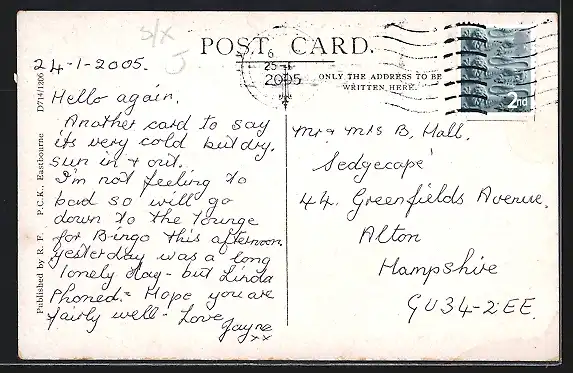 S/X
J
POST CARD.
6
25-1
2005
ONLY THE ADDRESS TO BE
WRITTEN HERE.
2nd
24-1-2005.
Hello again.
Another card to say
its very cold but dry.
sun in + out.
I'm not feeling to
bad so will go
down to the lounge
for Bingo this afternoon.
yesterday was a long
lonely day - but Linda
Phoned. - Hope you are
fairly well - Love
Jayne
xx
Mr & Mrs B. Hall.
'Sedgecape'
44. Greenfields Avenue.
Alton
Hampshire
GU34-2EE.
Published by R. F. P.C.K., Eastbourne D714/1206